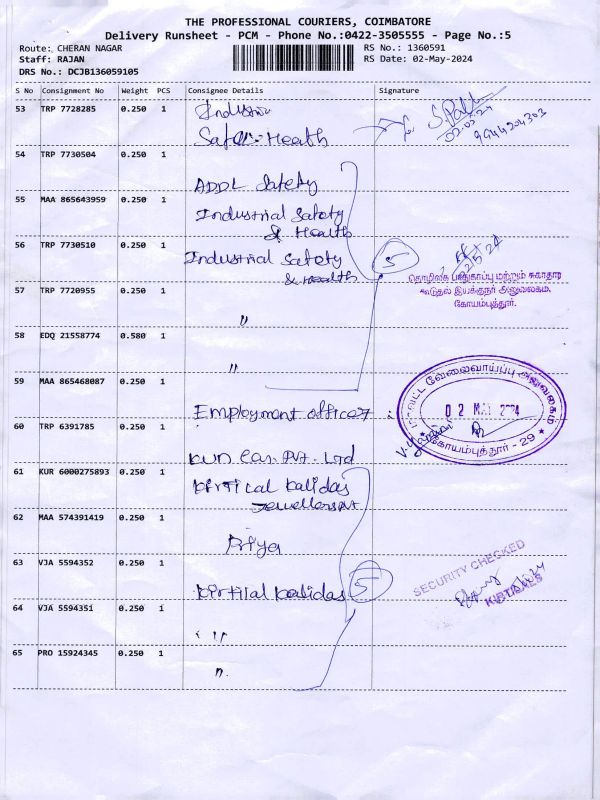 THE PROFESSIONAL COURIERS, COIMBATORE
Delivery Runsheet - PCM - Phone No.:0422-3505555 - Page No.:5
Route: CHERAN NAGAR
RS No.: 1360591
Staff: RAJAN
RS Date: 02-May-2024
DRS No.: DCJB136059105
S No Consignment No Weight PCS Consignee Details Signature
53 TRP 7728285 0.250 1
Health
02-05-24
9944204303
54 TRP 7730504 0.250 1
ADDL Safety
55 MAA 865643959 0.250 1
Industrial Safety
& Health
56 TRP 7730510 0.250 1
Industrial Safety
& Health
5
தொழிலக பாதுகாப்பு மற்றும் சுகாதார
கூடுதல் இயக்குநர் அலுவலகம்,
கோயம்புத்தூர்.
57 TRP 7720955 0.250 1
"
58 EDQ 21558774 0.580 1
"
59 MAA 865468087 0.250 1
Employment officer
மாவட்ட வேலைவாய்ப்பு அலுவலகம்
02 MAY 2024
கோயம்புத்தூர் - 29
60 TRP 6391785 0.250 1
KUN Car. PVT. LTD
61 KUR 6000275893 0.250 1
Kirtical Kalidas
Jewellers
62 MAA 574391419 0.250 1
Priya
63 VJA 5594352 0.250 1
Kirtilal Kalidas 5
SECURITY CHECKED
KIRTILALS
64 VJA 5594351 0.250 1
"
65 PRO 15924345 0.250 1
"